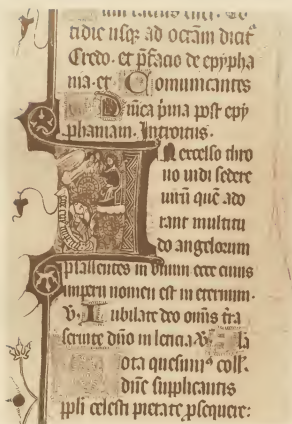 tidie usq; ad octam dicit᷑
Credo. et p̄facio de epypha
nia. et Comunicantes
Dn̄ica p̄ma post epy
phaniam. Introitus.
In excelso thro
no uidi sedere
uirū quē ado
rant multitu
do angelorum
psallentes in
imperii nomen est in eternum.
V. Iubilate deo omīs t̄ra
seruite dn̄o in leticia. V.
ota quesumꝰ coll.
dn̄e supplicantis
ppli celesti pietate ꝓsequere: